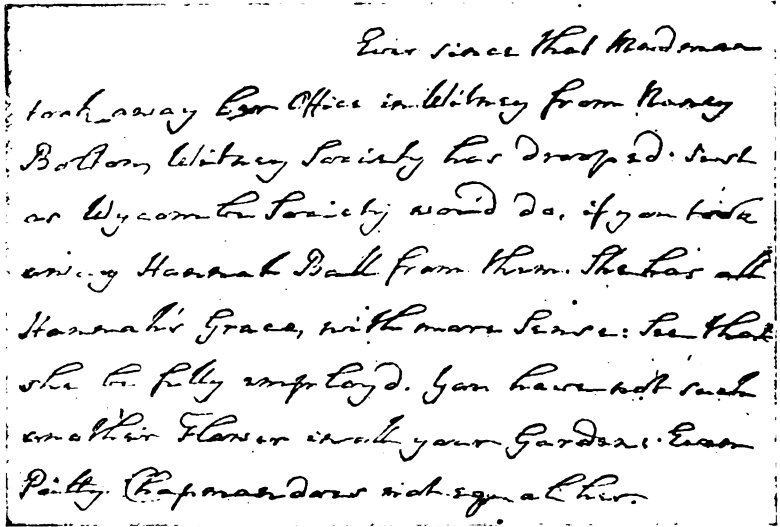 Ever since that Madman
took away her Office in Witney from Nancy
Bolton, Witney Society has drooped: just
as Wycombe Society wou'd do, if you took
away Hannah Ball from them. She has all
Hannah's Grace, with more Sense: See that
she be fully employ'd. You have not such
another Flower in all your Gardens. Even
Patty Chapman does not equal her.